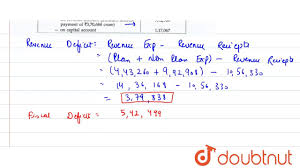 payment of ₹3,70,686 crore)
– on capital account 1,17,067
Revenue Deficit: Revenue Exp - Revenue Reciepts
= (Plan + Non Plan Exp) - Revenue Reciepts
= (4,43,260 + 9,92,908) - 10,56,330
= 14,36,168 - 10,56,330
= 3,79,838
Fiscal Deficit = 5,42,499
doubtnut